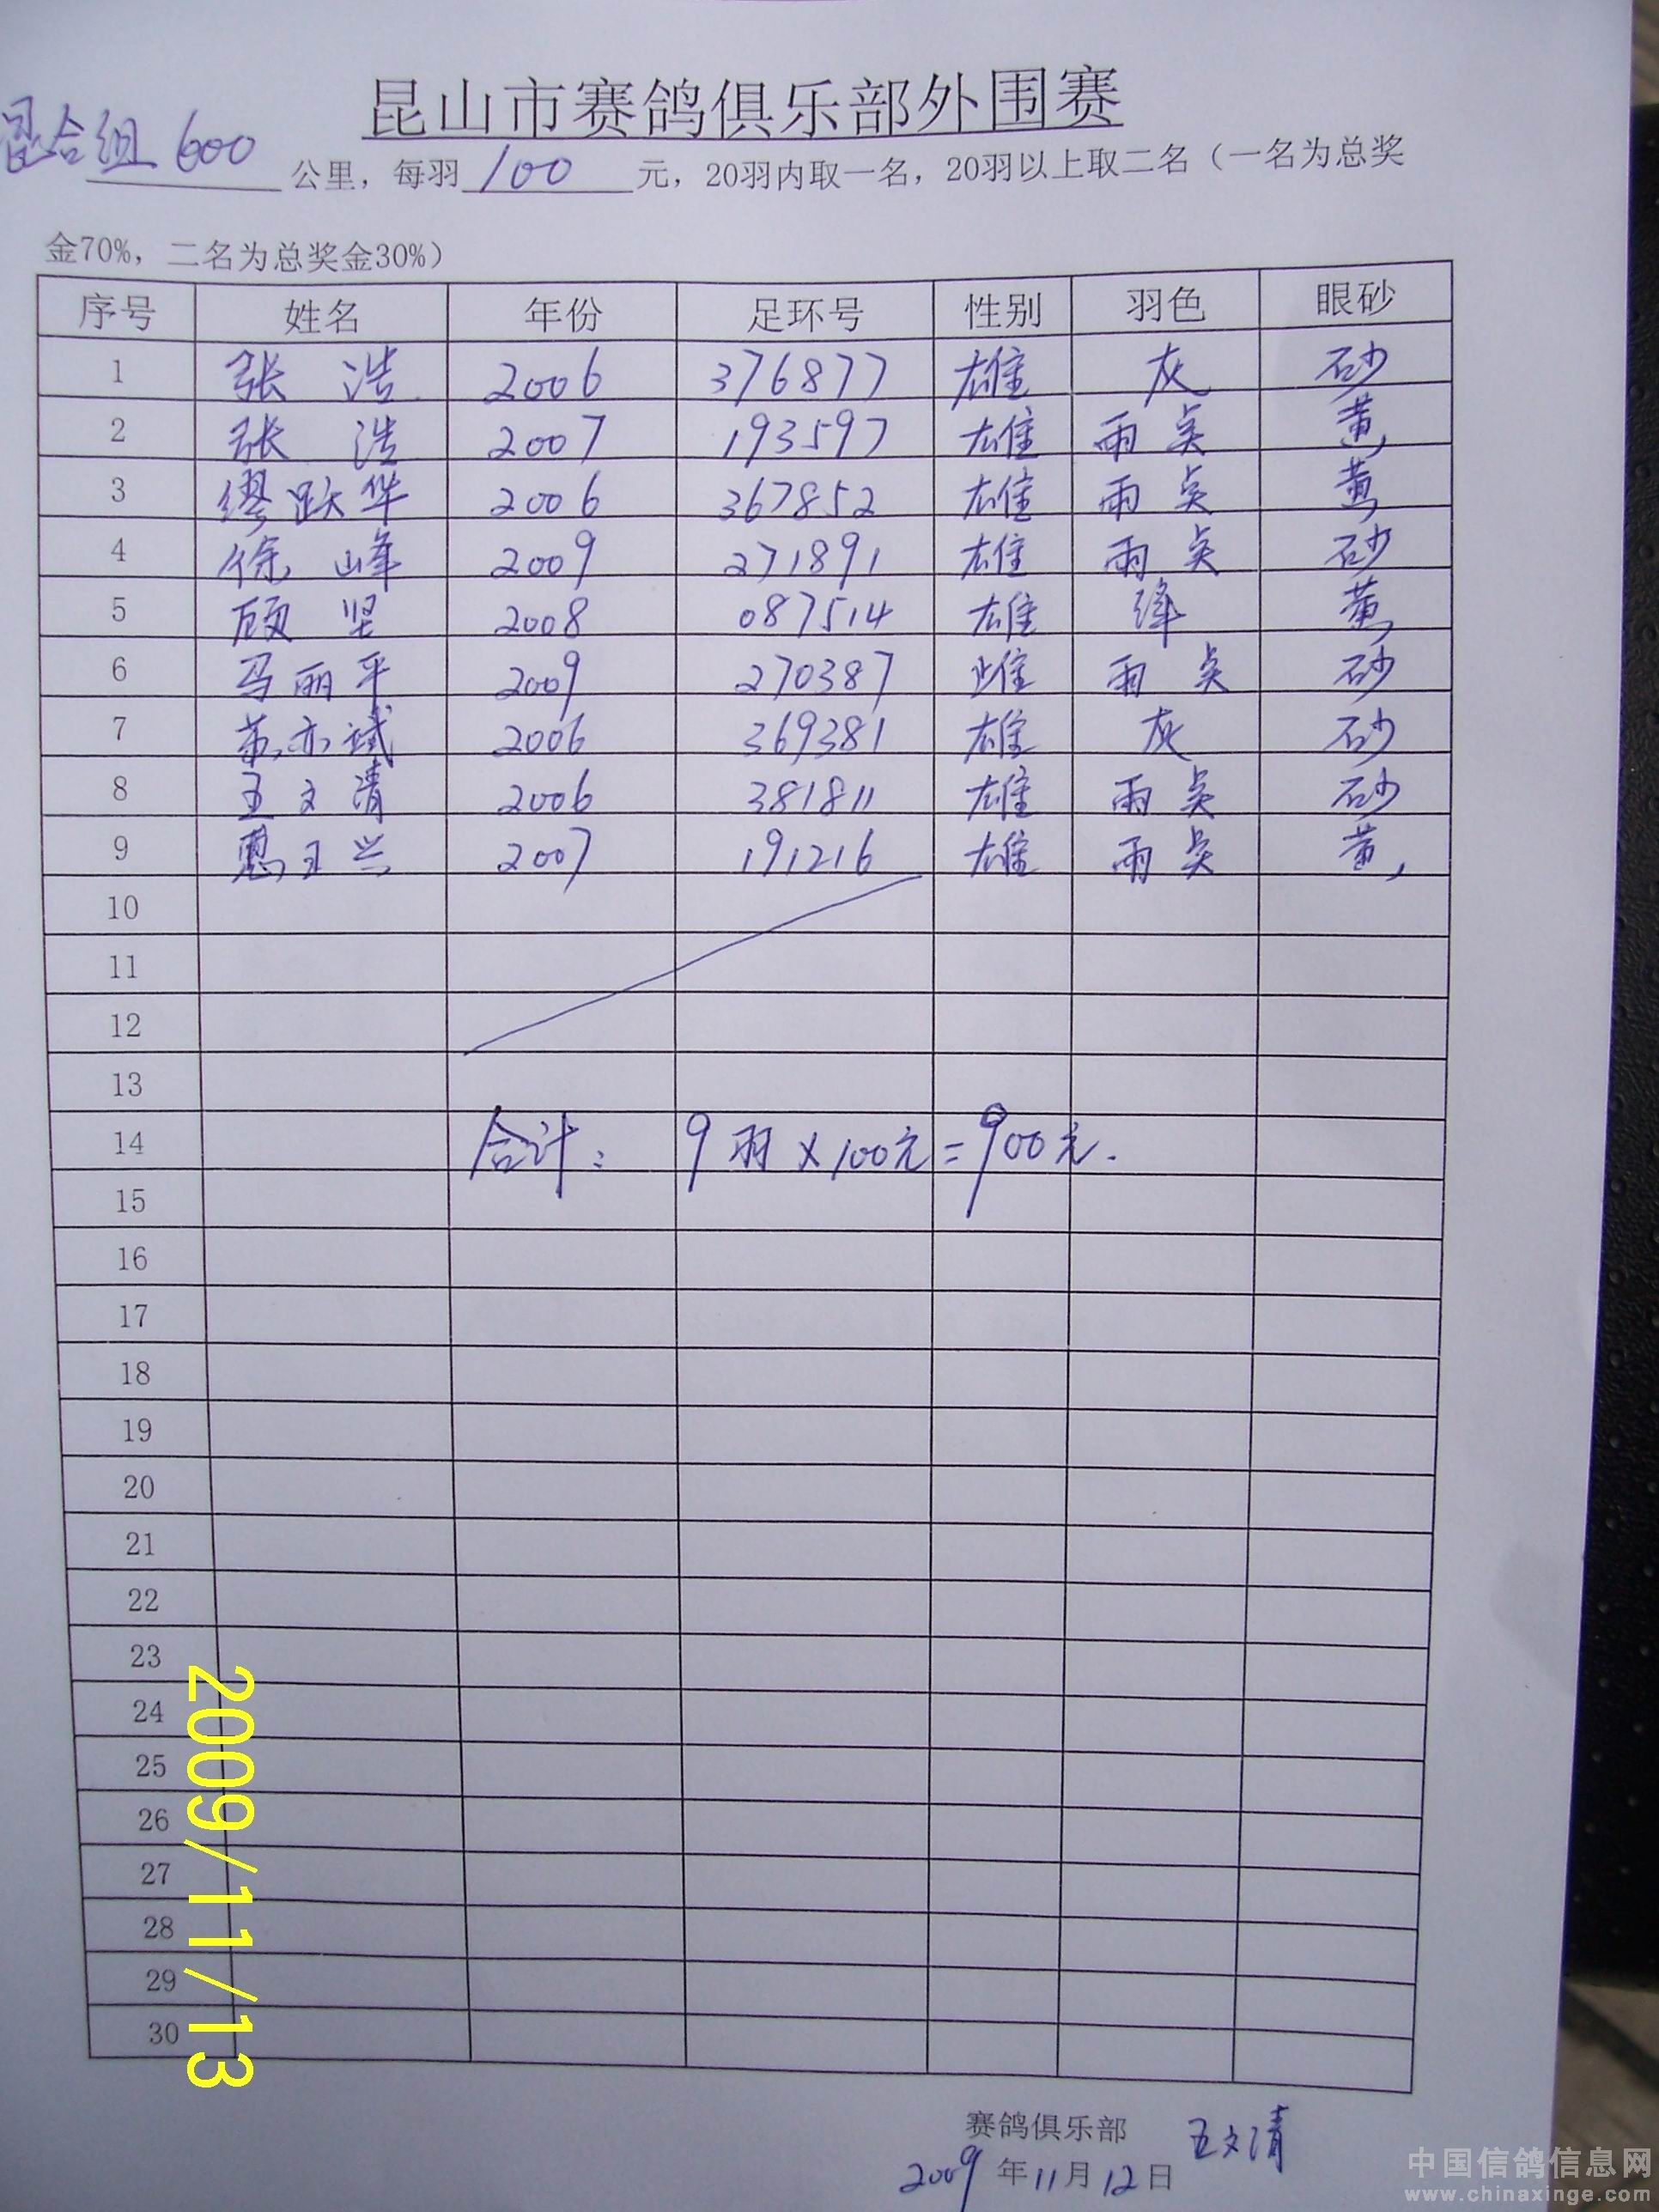 昆山市赛鸽俱乐部外围赛
混合组 600 公里，每羽 100 元，20羽内取一名，20羽以上取二名（一名为总奖
金70%，二名为总奖金30%）
序号 姓名 年份 足环号 性别 羽色 眼砂
1 张浩 2006 376877 雄 灰 砂
2 张浩 2007 193597 雄 雨点 黄
3 缪跃华 2006 367852 雄 雨点 黄
4 徐峰 2009 271891 雄 雨点 砂
5 顾坚 2008 087514 雄 绛 黄
6 马丽平 2009 270387 雌 雨点 砂
7 黄亦斌 2006 369381 雄 灰 砂
8 王文清 2006 381811 雄 雨点 砂
9 惠卫兴 2007 191216 雄 雨点 黄
10
11
12
13
14 合计： 9羽×100元=900元.
15
16
17
18
19
20
21
22
23
24
25
26
27
28
29
30
2009/11/13
赛鸽俱乐部 王文清
2009年11月12日
中国信鸽信息网
www.chinaxinge.com